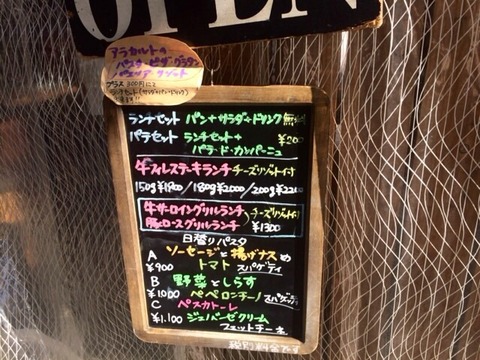 OPEN
アラカルトの
パスタ・ピザ・グラタン
パエリア リゾット
プラス300円にて
ランチセット(サラダ・パン・ドリンク)
ランチセット パン+サラダ+ドリンク 無料
パテセット ランチセット+ ¥200
パテ・ド・カンパーニュ
牛フィレステーキランチ チーズリゾット付
150g¥1800/180g¥2000/200g¥2200
牛サーロイングリルランチ チーズリゾット付
豚ロースグリルランチ ¥1300
日替りパスタ
A ソーセージと揚げナスの
¥900 トマト スパゲティ
B 野菜としらす
¥1.000 ペペロンチーノ スパゲッティ
C ペスカトーレ
¥1.100 ジェノバーゼクリーム
フェットチーネ